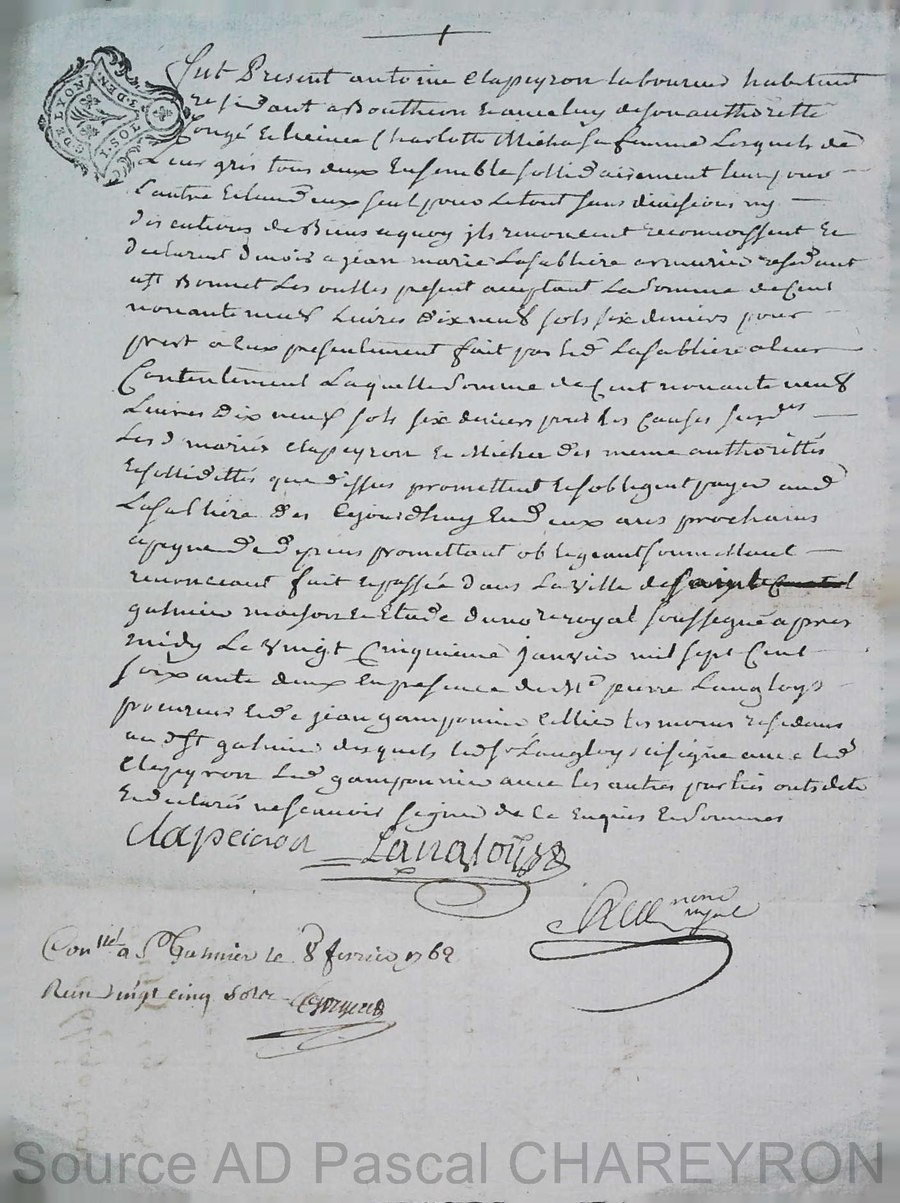 GNDELYNON
1.SOL.
3.DEN.
fut Present antoine Clapeyron laboureur habitant
résidant a Bouthéon Et avec luy de son authorité
Congé Et licence Charlotte Micha sa femme Lesquels de
Leur gré tous deux Ensemble sollidairement l'un pour
L'autre Et l'un d'eux seul pour Le tout sans divisions ny
discutions de Biens a quoy ils renoncent reconnoissent Et
declarent devoir a jean marie Lasabliere armurier residant
a st Bonnet Les oulles présent acceptant La somme de Cent
nonante neuf Livres dix neuf sols six deniers pour
prest a Eux présentement fait par led Lasabliere a leur
Contentement Laquelle somme de Cent nonante neuf
Livres dix neuf sols six deniers pour les Causes susdes
Les d mariés Clapeyron Et Micha des meme authorittés
Et sollidittés que d'issus promettent Et s'obligent payer aud
Lasabliere des Cejourdhuy En deux ans prochains
a peyne de d'épens promettant obligeant soumettant
renonceant fait Et passé dans La ville de saint
galmier maison Et Etude du nore royal soussigné apres
midy Le vingt Cinquieme janvier mil sept Cent
soixante deux En presence de Me pierre Langloys
procureur Et de jean gamponnie Cellier tesmoins residans
aud st galmier desquels led sr Langloys a signé avec led
Clapeyron Led gamponnie avec les autres parties onts dete
Et declarés ne scavoir signer de Ce Enquis Et sommés
Clapeiron Langloys
nore
royal
Conllé a St Galmier le 8 fevrier 1762
Recu vingt cinq sols
Source AD Pascal CHAREYRON